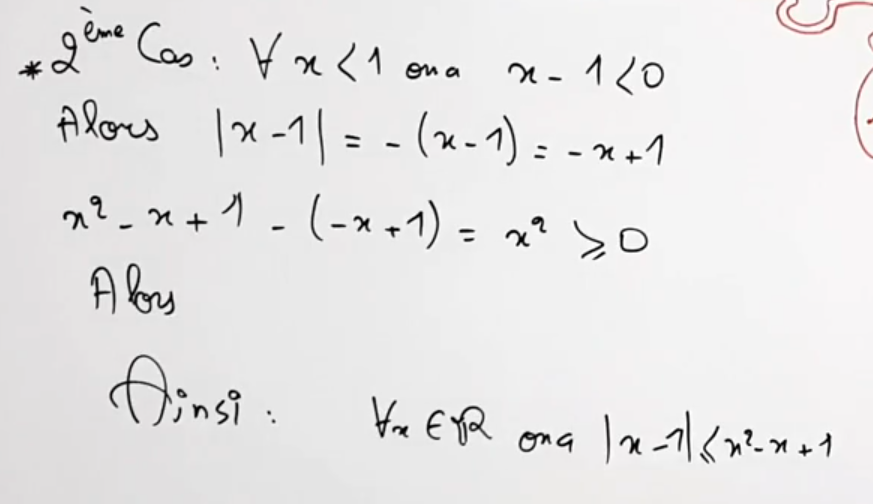 * 2ème Cas : ∀ x < 1 on a x - 1 < 0
Alors |x - 1| = - (x - 1) = - x + 1
x² - x + 1 - (- x + 1) = x² ⩾ 0
Alors
Ainsi : ∀x ∈ ℝ on a |x - 1| ⩽ x² - x + 1